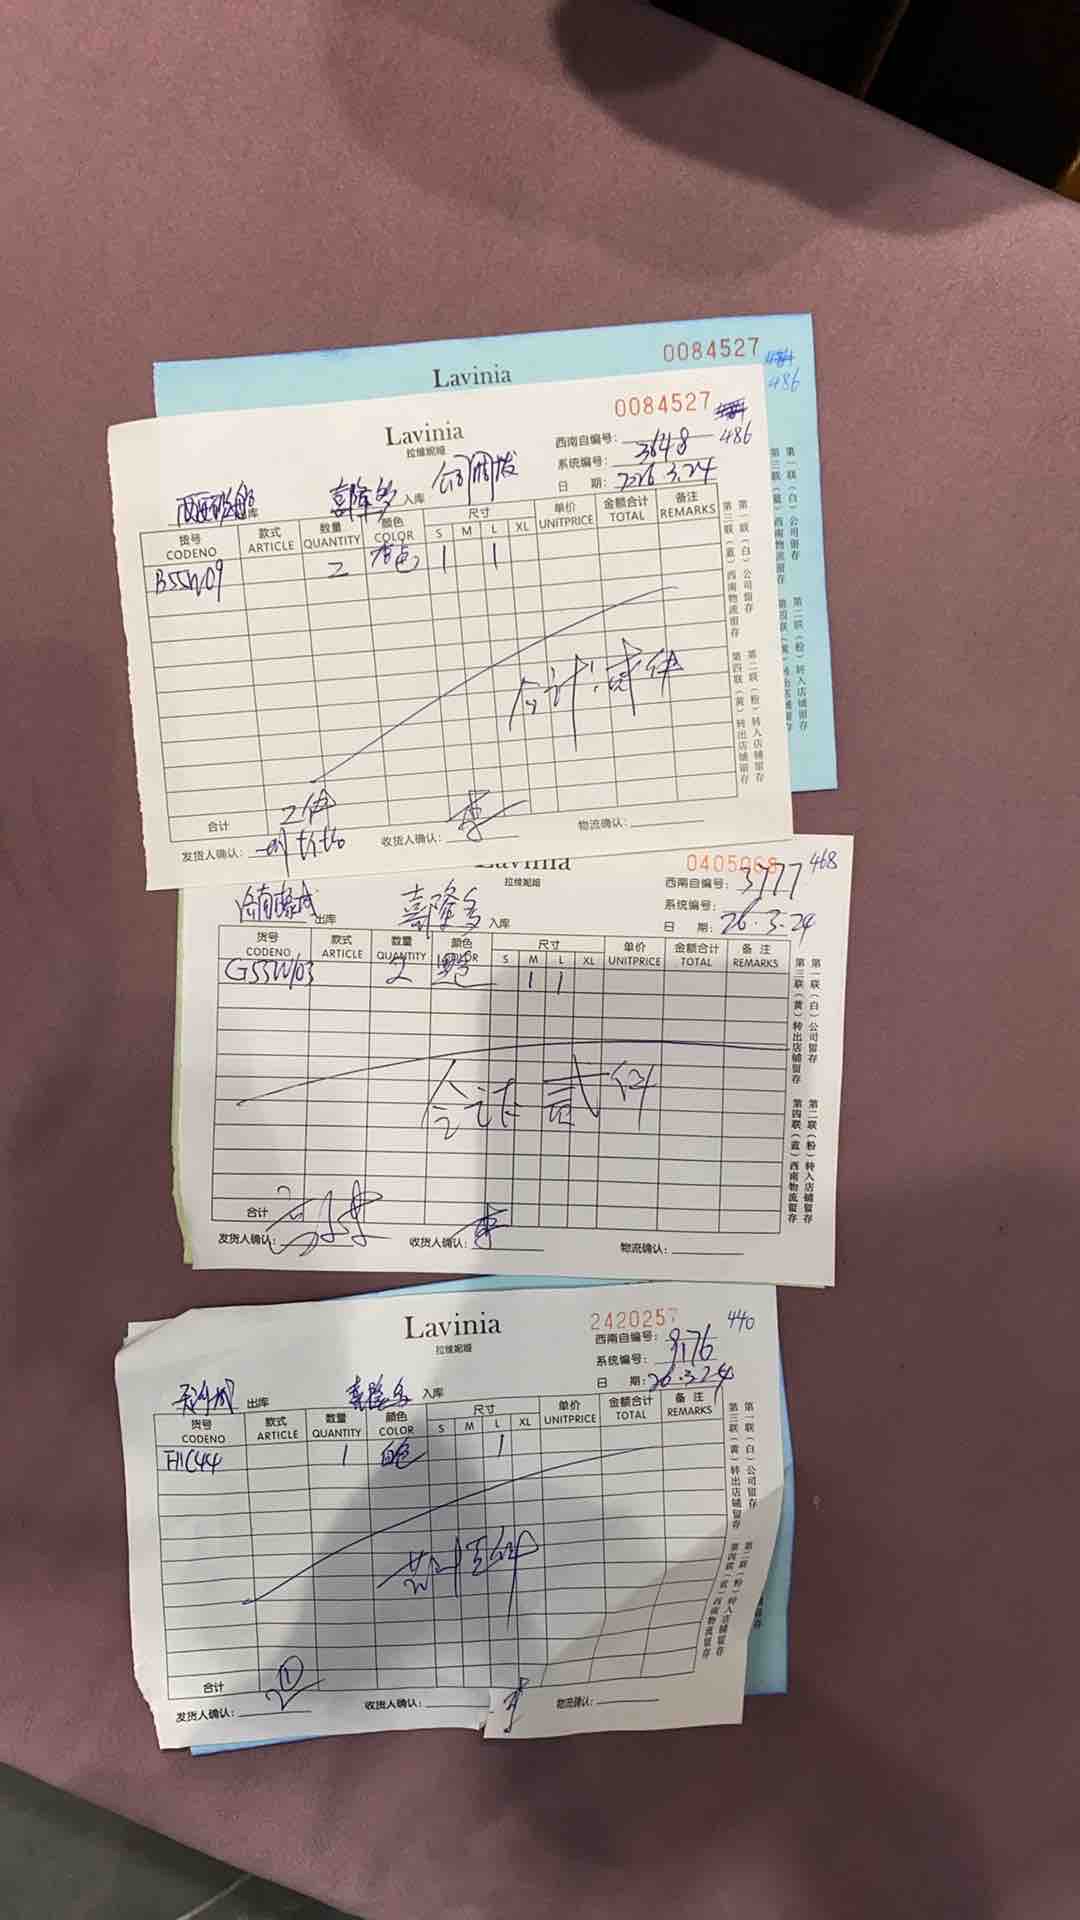 Lavinia 0084527
486
Lavinia 0084527
拉维妮娅
西南自编号: 3648 486
系统编号:
日 期: 2026.3.24
出库 喜隆多 入库
货号 CODENO 款式 ARTICLE 数量 QUANTITY 颜色 COLOR 尺寸 S M L XL 单价 UNITPRICE 金额合计 TOTAL 备注 REMARKS
B5SW09 2 1 1
合计:贰件
合计 2件
发货人确认: 收货人确认: 李 物流确认:
第一联(白)公司留存 第二联(粉)转入店铺留存
第三联(蓝)西南物流留存 第四联(黄)转出店铺留存
Lavinia
拉维妮娅
西南自编号: 3777 468
系统编号:
日 期: 26.3.24
出库 喜隆多 入库
货号 CODENO 款式 ARTICLE 数量 QUANTITY 颜色 COLOR 尺寸 S M L XL 单价 UNITPRICE 金额合计 TOTAL 备注 REMARKS
G5SW103 2 黑色 1 1
合计 贰件
合计
发货人确认: 收货人确认: 李 物流确认:
第一联(白)公司留存 第二联(粉)转入店铺留存
第三联(黄)转出店铺留存 第四联(蓝)西南物流留存
Lavinia 2420257 440
拉维妮娅
西南自编号: 9176
系统编号:
日 期: 26.3.24
出库 喜隆多 入库
货号 CODENO 款式 ARTICLE 数量 QUANTITY 颜色 COLOR 尺寸 S M L XL 单价 UNITPRICE 金额合计 TOTAL 备注 REMARKS
1 白色 1
合计 ①
发货人确认: 收货人确认: 物流确认:
第一联(白)公司留存 第二联(粉)转入店铺留存
第三联(黄)转出店铺留存 第四联(蓝)西南物流留存